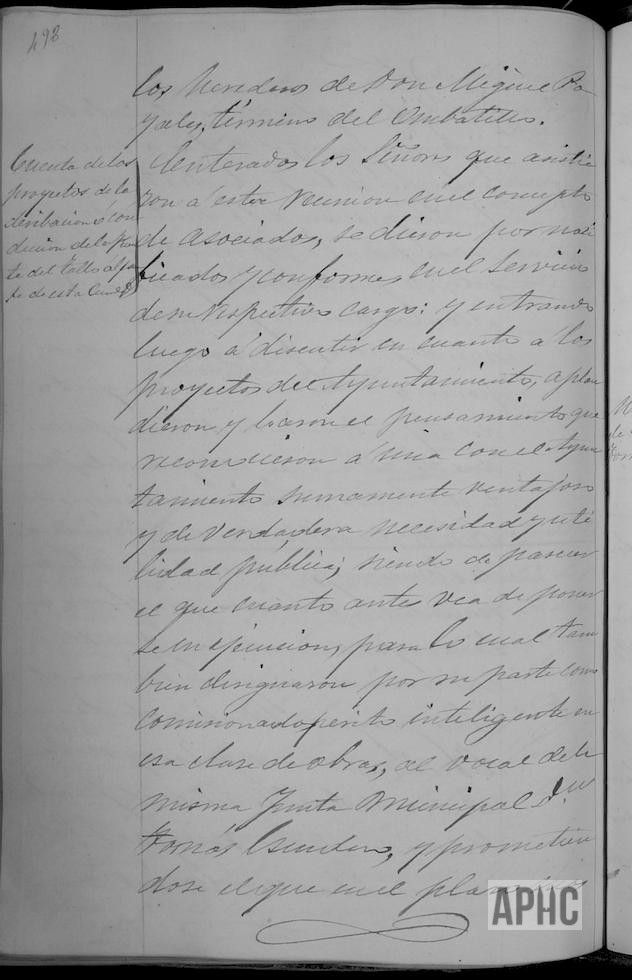 493
los herederos de Don Miguel Po
yales, término del Ombatillo.
Cuenta de los
proyectos de la
deribacion ó con
duccion de la fuen
te del Tollo al pun
to de esta Ciudad
Enterados los Señores que asistie
ron á esta reunion en el concepto
de asociados, se dieron por noti
ficados y conformes en el servicio
de su respectivo cargo: y entrando
luego á discutir en cuanto á los
proyectos del Ayuntamiento, aplau
dieron y loaron el pensamiento que
reconocieron á una con el Ayun
tamiento sumamente ventajoso
y de verdadera necesidad y uti
lidad pública; siendo de parecer
el que cuanto antes vea de poner
se en ejecucion, para lo cual tam
bien designaron por su parte como
comisionado perito inteligente en
esa clase de obras, al vocal de la
misma Junta Municipal D.n
Tomás Escudero, y prometien
dose el que en el plan
APHC